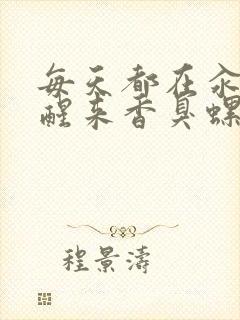 每天都在汆
醒来香臭螺
程景涛